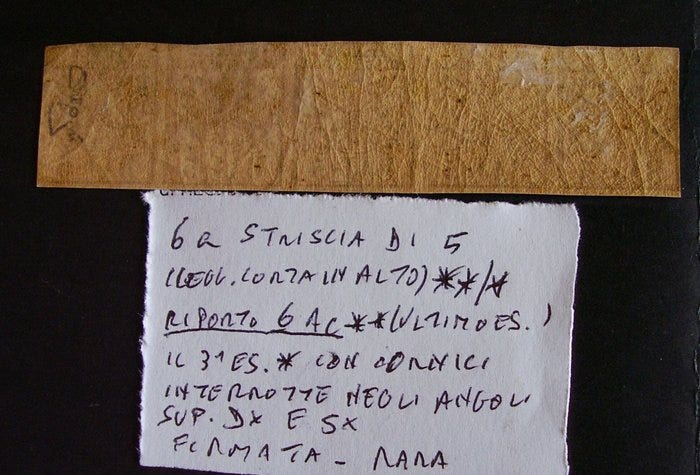 6a STRISCIA DI 5
(LEGG. CORTA IN ALTO) **/*
RIPORTO 6Ac **(ULTIMO ES.)
IL 3° ES. * CON CORNICI
INTERROTTE NEGLI ANGOLI
SUP. DX E SX
FIRMATA - RARA